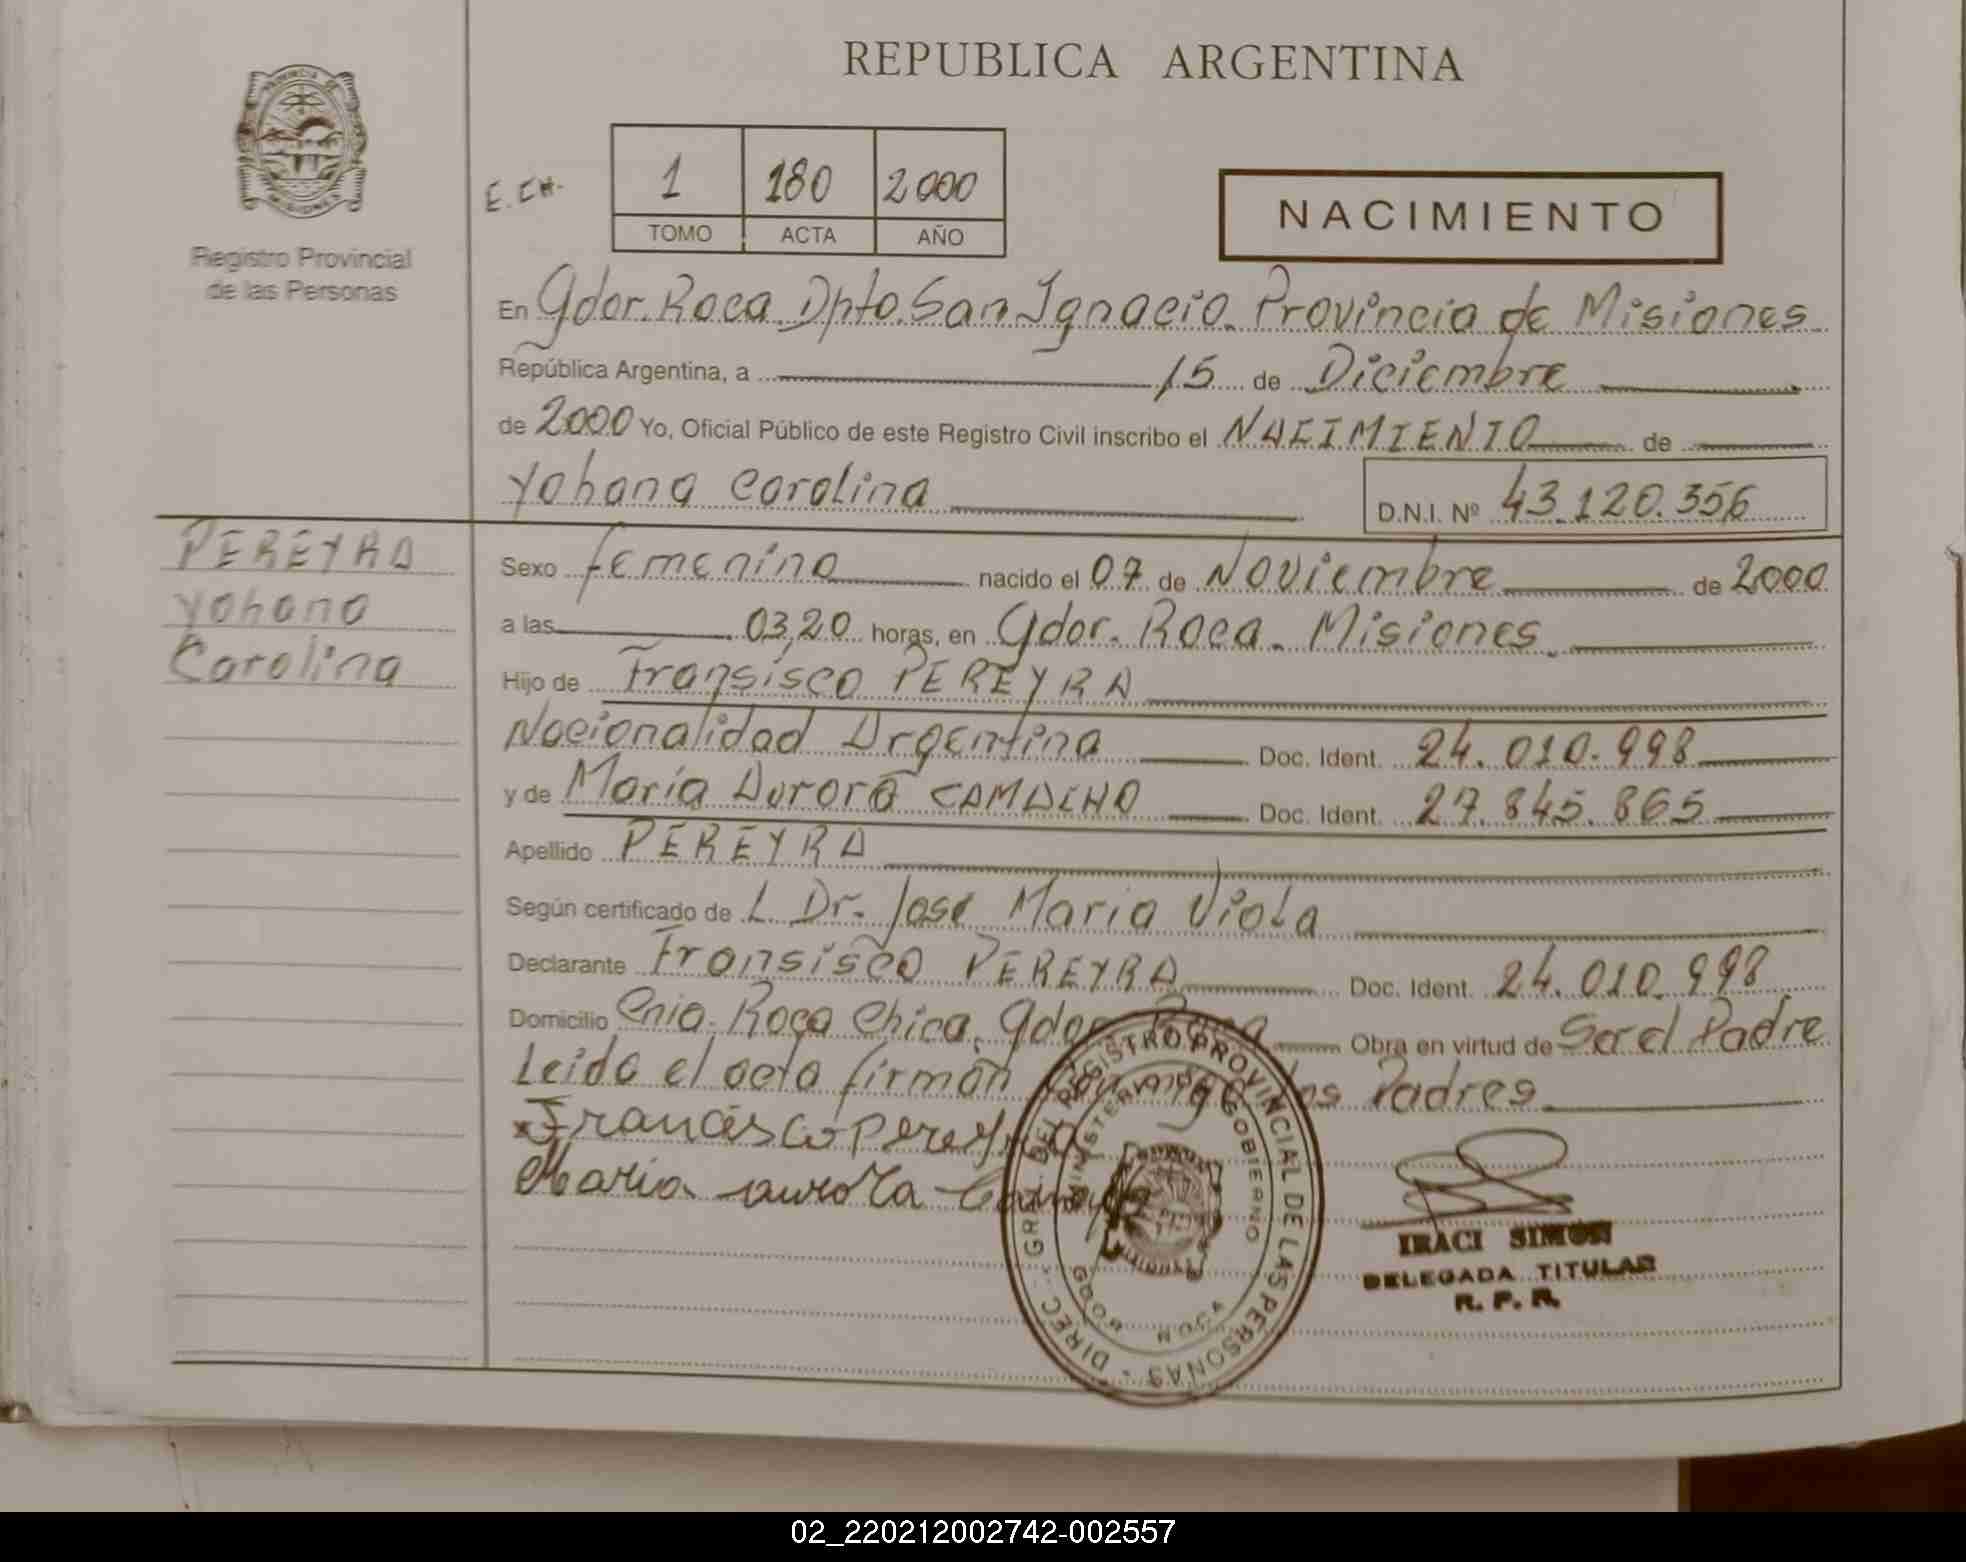 REPUBLICA ARGENTINA
PROVINCIA DE
MISIONES
Registro Provincial
de las Personas
E. CH.
1 180 2000
TOMO ACTA AÑO
NACIMIENTO
En Gdor. Roca Dpto. San Ignacio. Provincia de Misiones
República Argentina, a 15 de Diciembre
de 2000 Yo, Oficial Público de este Registro Civil inscribo el NACIMIENTO de
Yohana Carolina
D.N.I. Nº 43.120.356
PEREYRA
Yohana
Carolina
Sexo femenino nacido el 07 de Noviembre de 2000
a las 03,20 horas, en Gdor. Roca. Misiones.
Hijo de Fransisco PEREYRA
Nacionalidad Argentina Doc. Ident. 24.010.998
y de María Aurora CAMACHO Doc. Ident. 27.845.865
Apellido PEREYRA
Según certificado de L. Dr. Jose Maria Viola
Declarante Fransisco PEREYRA Doc. Ident. 24.010.998
Domicilio Cnia. Roca Chica. Gdor. Roca Obra en virtud de Ser el Padre
Leido el acta firman conmigo los Padres
Francisco Pereyra
Maria aurora
DIREC. GRAL. DEL REGISTRO PROVINCIAL DE LAS PERSONAS
MINISTERIO DE GOBIERNO
GDOR. ROCA
IRACI SIMON
DELEGADA TITULAR
R. P. P.
02_220212002742-002557